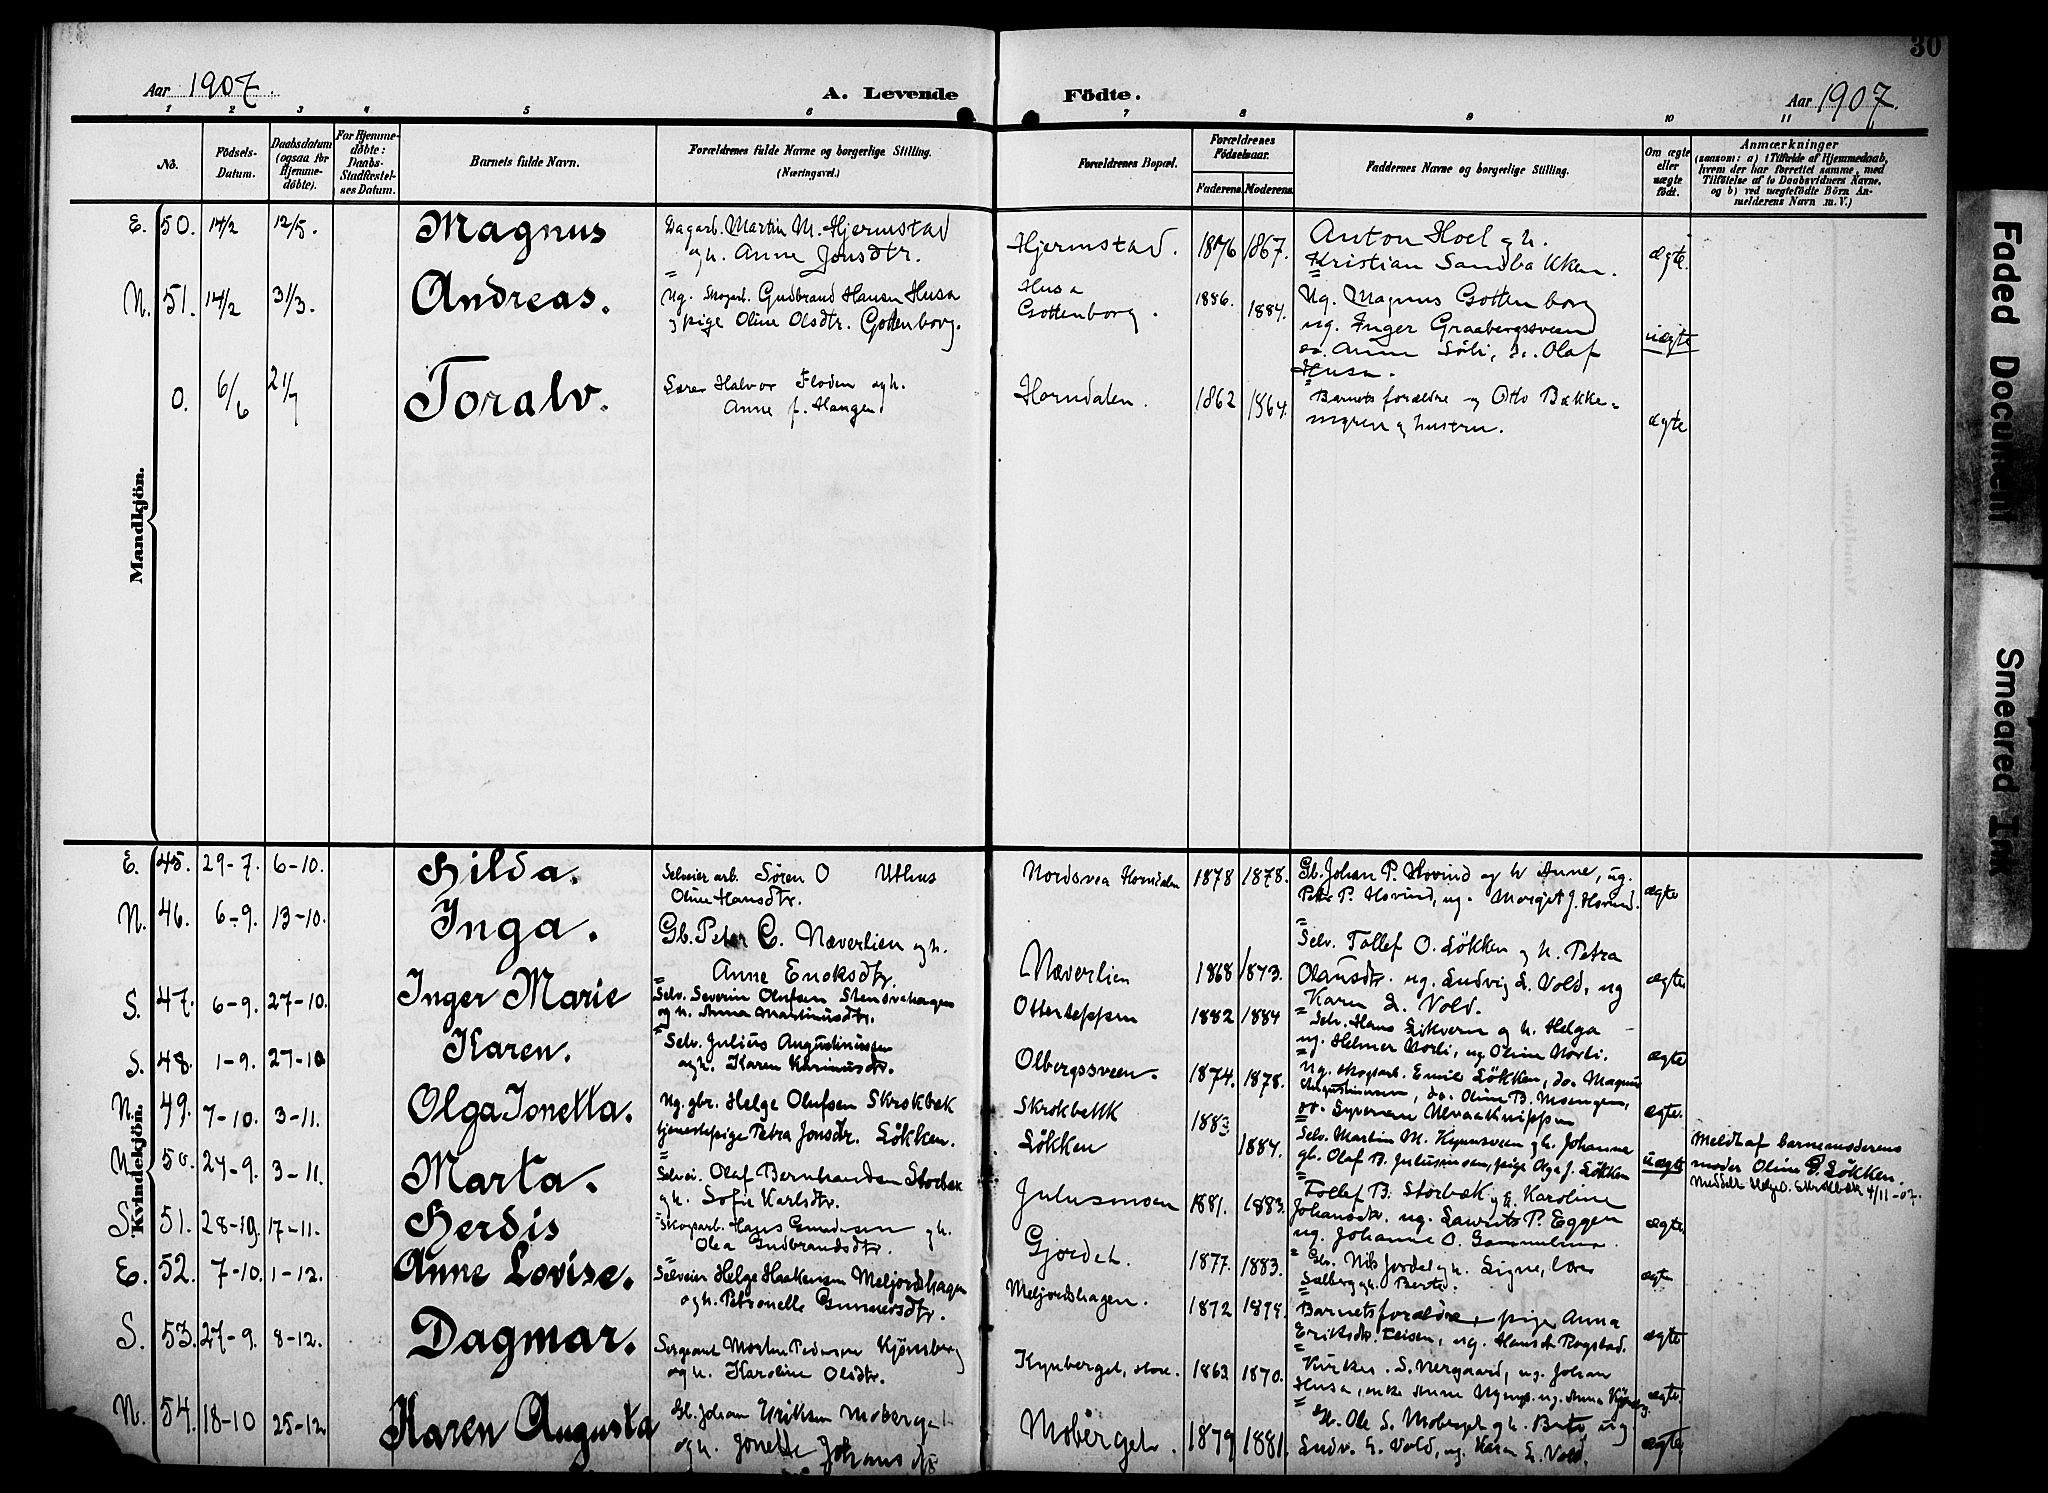 30
Aar 1907.
A. Levende Födte.
Aar 1907.
1 2 3 4 5 6 7 8 9 10 11
No.
Födsels-Datum.
Daabsdatum (ogsaa for Hjemme-døbte).
For Hjemme-døbte: Daabs-Stadfæstel-ses Datum.
Barnets fulde Navn.
Forældrenes fulde Navne og borgerlige Stilling.
(Næringsvei.)
Forældrenes Bopæl.
Forældrenes Födselsaar.
Faderens. Moderens.
Faddernes Navne og borgerlige Stilling.
Om ægte eller uægte født.
Anmærkninger
(saasom: a) i Tilfælde af Hjemmedaab,
hvem der har forrettet samme, med
Tilføielse af to Daabsvidners Navne,
og b) ved uægtefødte Börn An-
melderens Navn m. V.)
Mandkjön.
E. 50. 14/2 12/5. Magnus Dagarb. Martin M. Hjermstad
og h. Anne Jonsdtr. Hjermstad. 1876 1867. Anton Hoel og h.
Kristian Sandbakken. ægte.
N. 51. 14/2 31/3. Andreas. Ug. Skogarb. Gudbrand Hansen Husa
og pige Oline Olsdtr. Gottenborg. Husa
Gottenborg. 1886. 1884. Ug. Magnus Gottenborg
ug. Inger Graabergsveen
do. Anne Löli, do. Olaf
Husa. uægte
0. 6/6 21/7 Toralv. Lærer Halvor Floden og h.
Anne f. Haugen Horndalen. 1862 1864. Barnets forældre og Otto Bække-
myren og hustru. ægte
Kvindekjön.
E. 45. 29-7. 6-10. Hilda. Selveier arb. Søren O Uthus
Oline Hansdtr. Nordsvea Horndalen 1878 1878. Gb. Johan P. Hovind og h Anne, ug.
Peter P. Hovind, ug. Margit J. Hovind. ægte
N. 46. 6-9. 13-10. Inga. Gb. Peter C. Næverlien og h.
Anne Eriksdtr. Næverlien 1868 1873. Selv. Tollef O. Løkken og h. Petra
Olausdtr. ug. Ludvig L. Vold, ug
Karen L. Vold. ægte
S. 47. 6-9. 27-10. Inger Marie Selv. Severin Olufsen
og h. Anna Martinusdtr. Otterteppen 1882 1884 Selv. Hans Likvern og h. Helga
ug. Helmer Norli, ug Oline Norli. ægte
S. 48. 1-9. 27-10 Karen. Selv. Julius Augustinussen
og h. Karen Karinusdtr. Olbergssveen. 1874. 1878. Ug. skogarb. Emil Løkken, do. Magnus
Augustinussen, do. Oline B. Moengen,
ægte.
N. 49. 7-10. 3-11. Olga Jonetta. Ug. gbr. Helge Olufsen Skrokbæk
tjenestepige Petra Jonsdtr. Løkken. Skrokbækk
Løkken 1883 1884. Selv. Martin M. Kynnsveen og h. Johanne
gb. Olaf B. Juliusmoen, pige Olga J. Løkken uægte Meldt af barnemoderens
moder Oline Løkken.
N. 50. 24-9. 3-11. Marta. Selvei. Olaf Bernhardsen Storbæk
og h. Sofie Karlsdtr. Juliusmoen 1881. 1883. Tollef B. Storbæk og h. Karoline
Johansdtr. ug. Laurits P. Eggen
ug. Johanne O. ægte
S. 51. 28-19. 17-11. Herdis Skogarb. Hans Gundersen og h.
Olea Gudbrandsdtr. Gjordet. 1877. 1883. Gb. Nils Jordet og h. Signe, lærer
Salberg og h. Berte. ægte
E. 52. 7-10. 1-12. Anne Lovise. Selveier Helge Haakensen Meljordshagen
og h. Petronelle Gunnersdtr. Meljordshagen. 1872 1874. Barnets forældre, pige Anna
Eriksdtr. ug. Hans Rogstad. ægte
S. 53. 27-9. 8-12. Dagmar. Sergeant Morten Pedersen Kjønsberg
og h. Karoline Olsdtr. Kynberget, store. 1863 1870. Kirkes. S. Nergaard, ug. Johan
Husa, enke Anne ug. Anna ægte
N. 54. 18-10 25-12 Karen Augusta Gb. Johan Eriksen Moberget
og h. Jonette Johansdtr Moberget. 1879 1881. Gb. Ole S. Moberget og h. Berte, ug.
Ludv. L. Vold, ug. Karen L. Vold. ægte
Faded Document
Smeared Ink